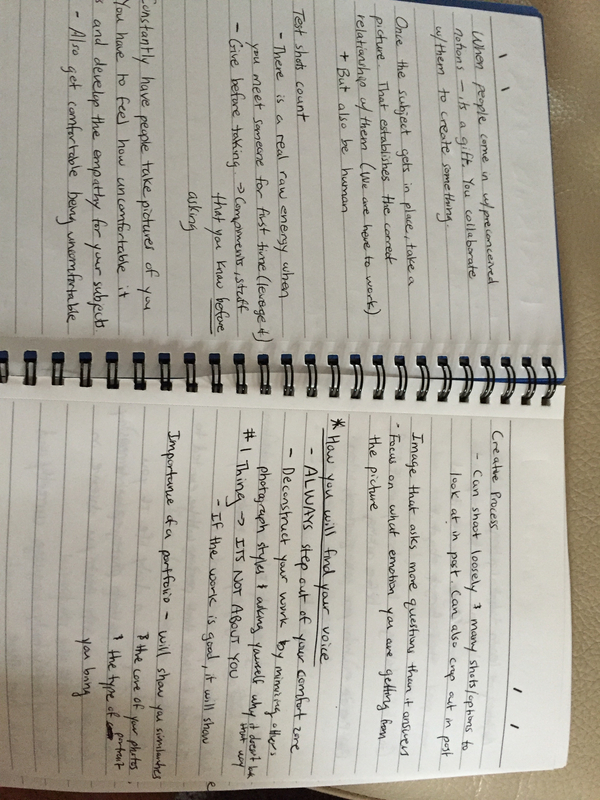 When people come in w/preconceived
notions - its a gift. You collaborate
w/them to create something.
Once the subject gets in place, take a
picture. That establishes the correct
relationship w/ them (We are here to work)
+ But also be human
Test shots count
- There is a real raw energy when
you meet someone for first time (leverage it)
- Give before taking -> Compliments, stuff
that you know before
asking
Constantly have people take pictures of you
You have to feel how uncomfortable it
s and develop the empathy for your subjects
- Also get comfortable being uncomfortable
Creative Process
- Can shoot loosely & many shots/options to
look at in post. Can also crop out in post
Image that asks more questions than it answers
- Focus on what emotion you are getting from
the picture
* How you will find your voice
- ALWAYS step out of your comfort zone
- Deconstruct your work by mimicing others
photograph styles & asking yourself why it doesn't be
that way
#1 Thing -> ITS NOT ABOUT YOU
- If the work is good, it will show
Importance of a portfolio - will show you similarities
& the core of your photos,
& the type of portrait
you bring